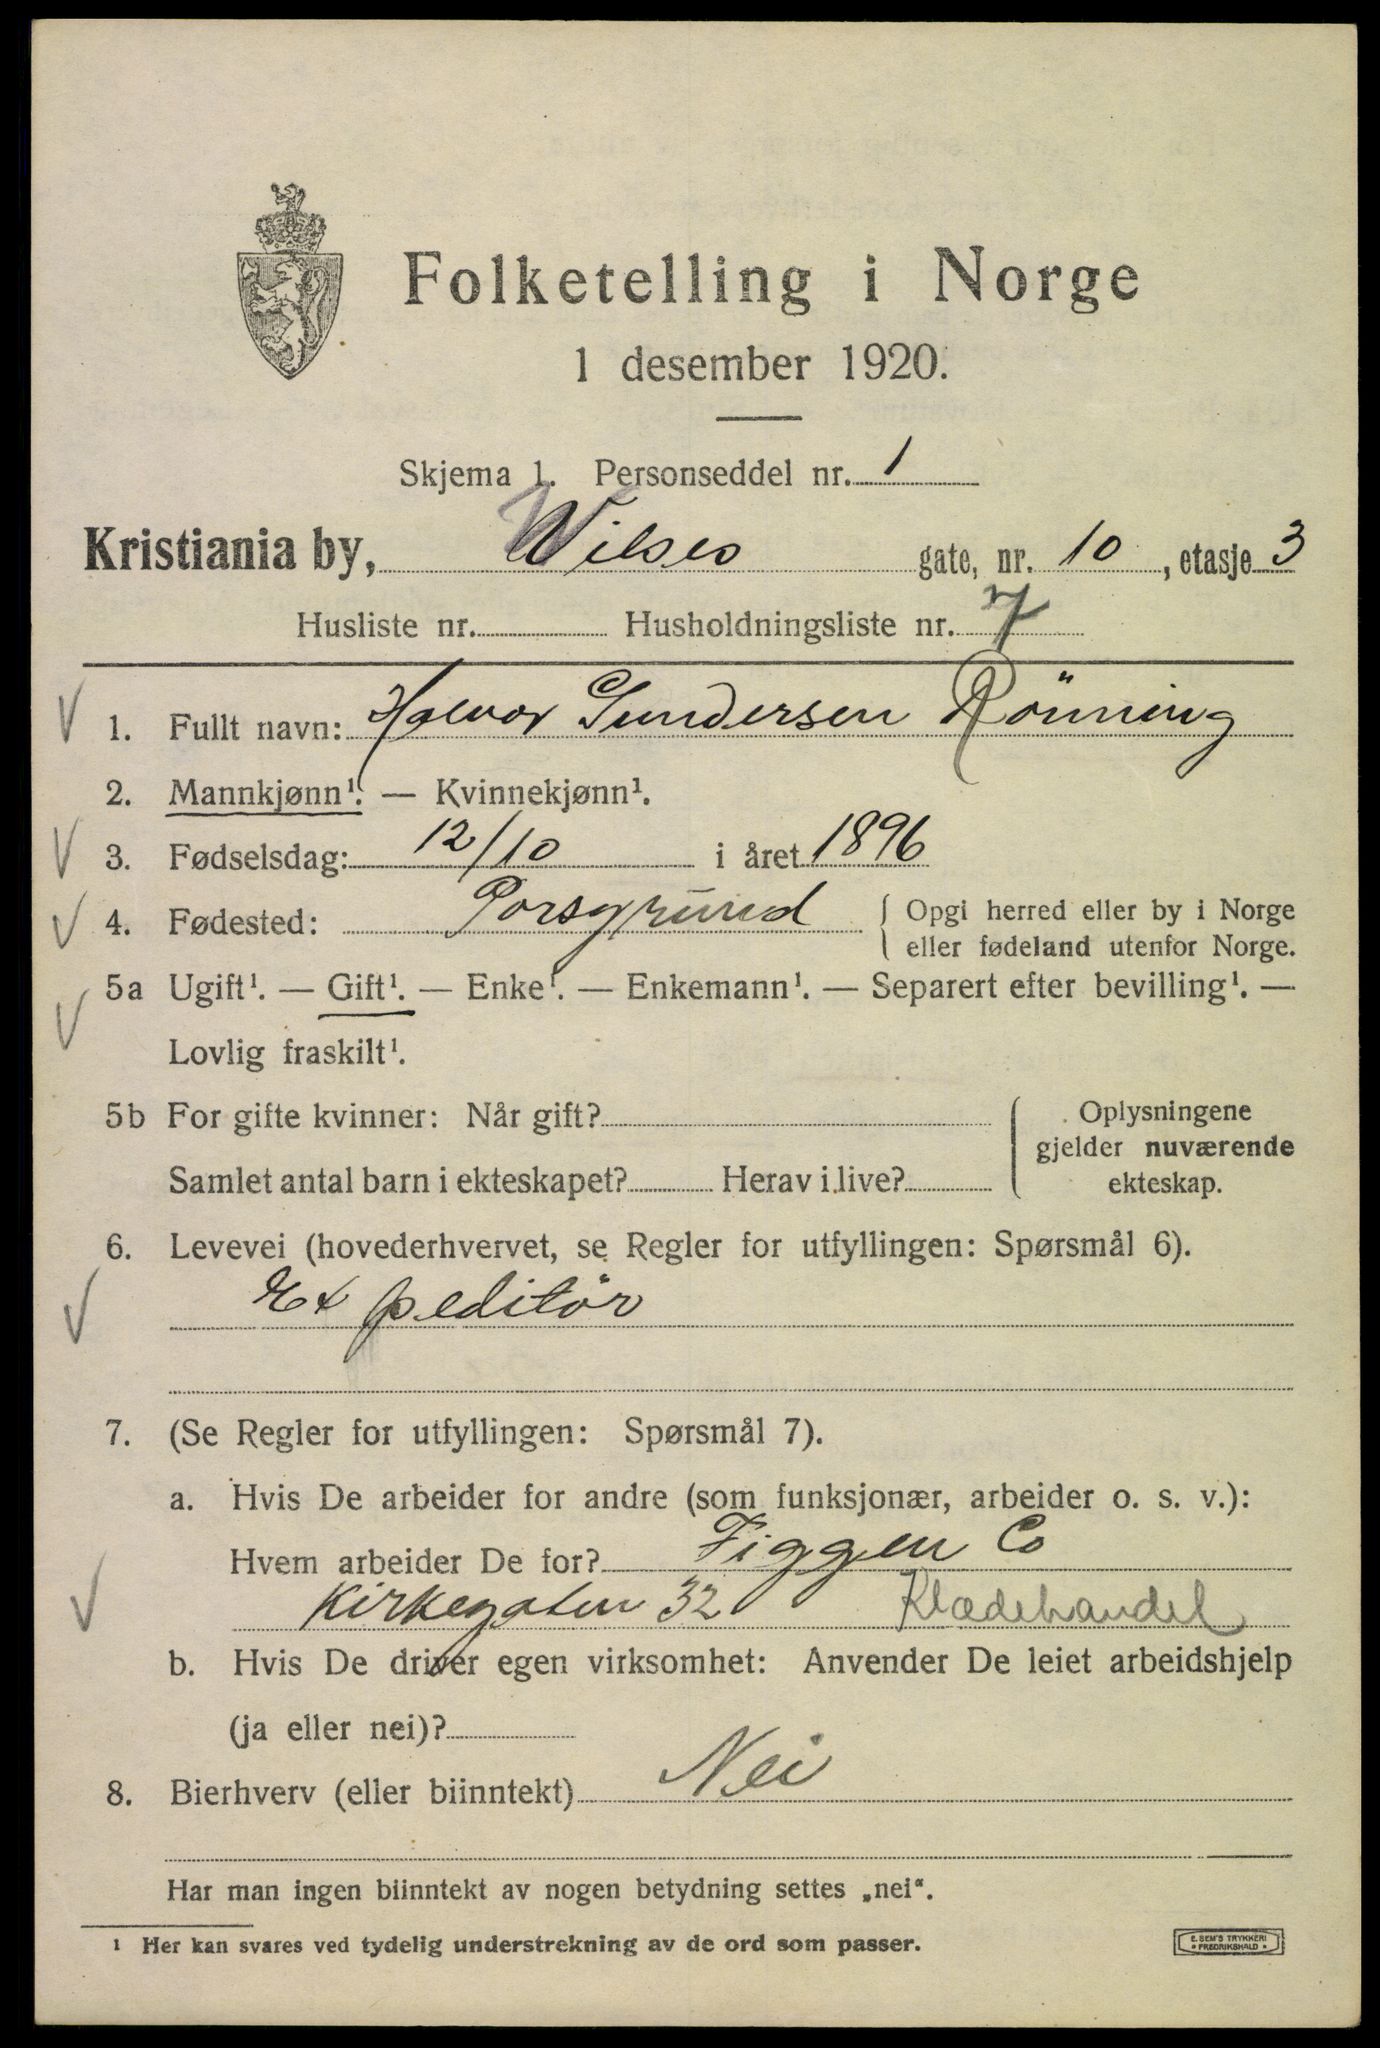 Folketelling i Norge
1 desember 1920.
Skjema 1. Personseddel nr. 1
Kristiania by, Wilses gate, nr. 10, etasje 3
Husliste nr. Husholdningsliste nr. 7
1. Fullt navn: Halvor Gundersen Rönning
2. Mannkjønn¹. — Kvinnekjønn¹.
3. Fødselsdag: 12/10 i året 1896
4. Fødested: Porsgrund { Opgi herred eller by i Norge
eller fødeland utenfor Norge.
5a Ugift¹. — Gift¹. — Enke¹. — Enkemann¹. — Separert efter bevilling¹. —
Lovlig fraskilt¹.
5b For gifte kvinner: Når gift? Oplysningene
gjelder nuværende
Samlet antal barn i ekteskapet? Herav i live? ekteskap.
6. Levevei (hovederhvervet, se Regler for utfyllingen: Spørsmål 6).
Expeditör
7. (Se Regler for utfyllingen: Spørsmål 7).
a. Hvis De arbeider for andre (som funksjonær, arbeider o. s. v.):
Hvem arbeider De for? Figgen Co
Kirkegaten 32 Klædehandel
b. Hvis De driver egen virksomhet: Anvender De leiet arbeidshjelp
(ja eller nei)?
8. Bierhverv (eller biinntekt) Nei
Har man ingen biinntekt av nogen betydning settes „nei“.
¹ Her kan svares ved tydelig understrekning av de ord som passer.
E. SEM'S TRYKKERI
* FREDRIKSHALD *